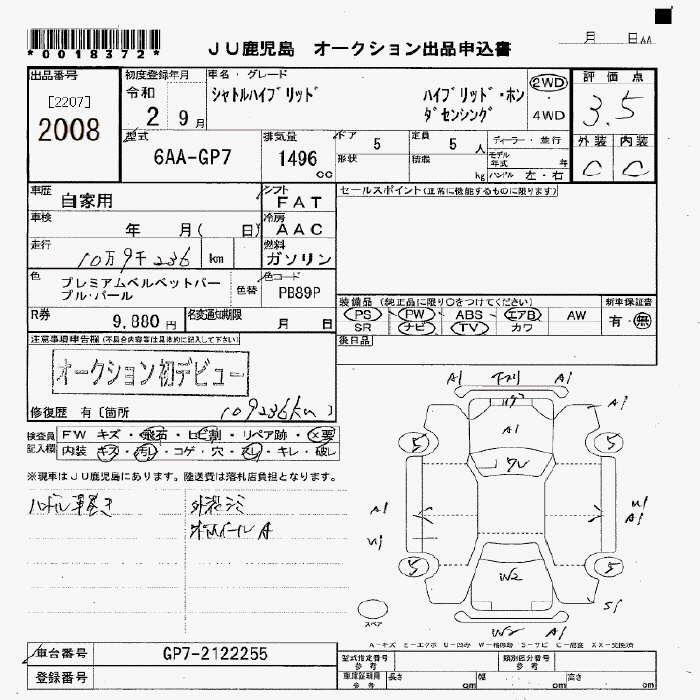 *0018372*
JU鹿児島 オークション出品申込書
月 日 AA
出品番号
[2207]
2008
初度登録年月
令和
2 9月
車名・グレード
シャトルハイブリッド ハイブリッド・ホン
ダセンシング
2WD
・
4WD
評価点
3.5
外装 内装
C C
型式
6AA-GP7
排気量
1496
cc
ドア
5
定員
5 人
形状
積載
kg
ディーラー・並行
モデル
年式 年
ハンドル 左・右
車歴
自家用
シフト
FAT
セールスポイント(正常に機能するものに限ります)
車検
年 月( 日)
冷房
AAC
走行
10万9千236 km
燃料
ガソリン
色
プレミアムベルベットパー
プル・パール
色替
色コード
PB89P
装備品 (純正品に限り○をつけてください)
PS・PW・ABS・エアB・AW
SR ナビ TV カワ
新車保証書
有・無
R券
9,880円
名変通知期限
月 日
後日品
注意事項申告欄(不具合内容等は具体的に記入して下さい)
オークション初デビュー
修復歴 有〔箇所 109236km〕
検査員
記入欄
FW キズ・飛石・ヒビ割・リペア跡・×要
内装 キズ・汚レ・コゲ・穴・スレ・キレ・破レ
※現車はJU鹿児島にあります。陸送費は落札店負担となります。
外装キズ
ホイールA
A1 A1
A1
A1
5 5
A1 U1
U1 A1
5 5
W2
S1
W2 A1
スペア
A-キズ E-エクボ U-凹み W-補修跡 S-サビ C-腐食 XX-交換済
車台番号
GP7-2122255
登録番号
型式指定番号
参考
類別区分番号
参考
車庫証明用
参考
長さ cm
幅 cm
高さ cm